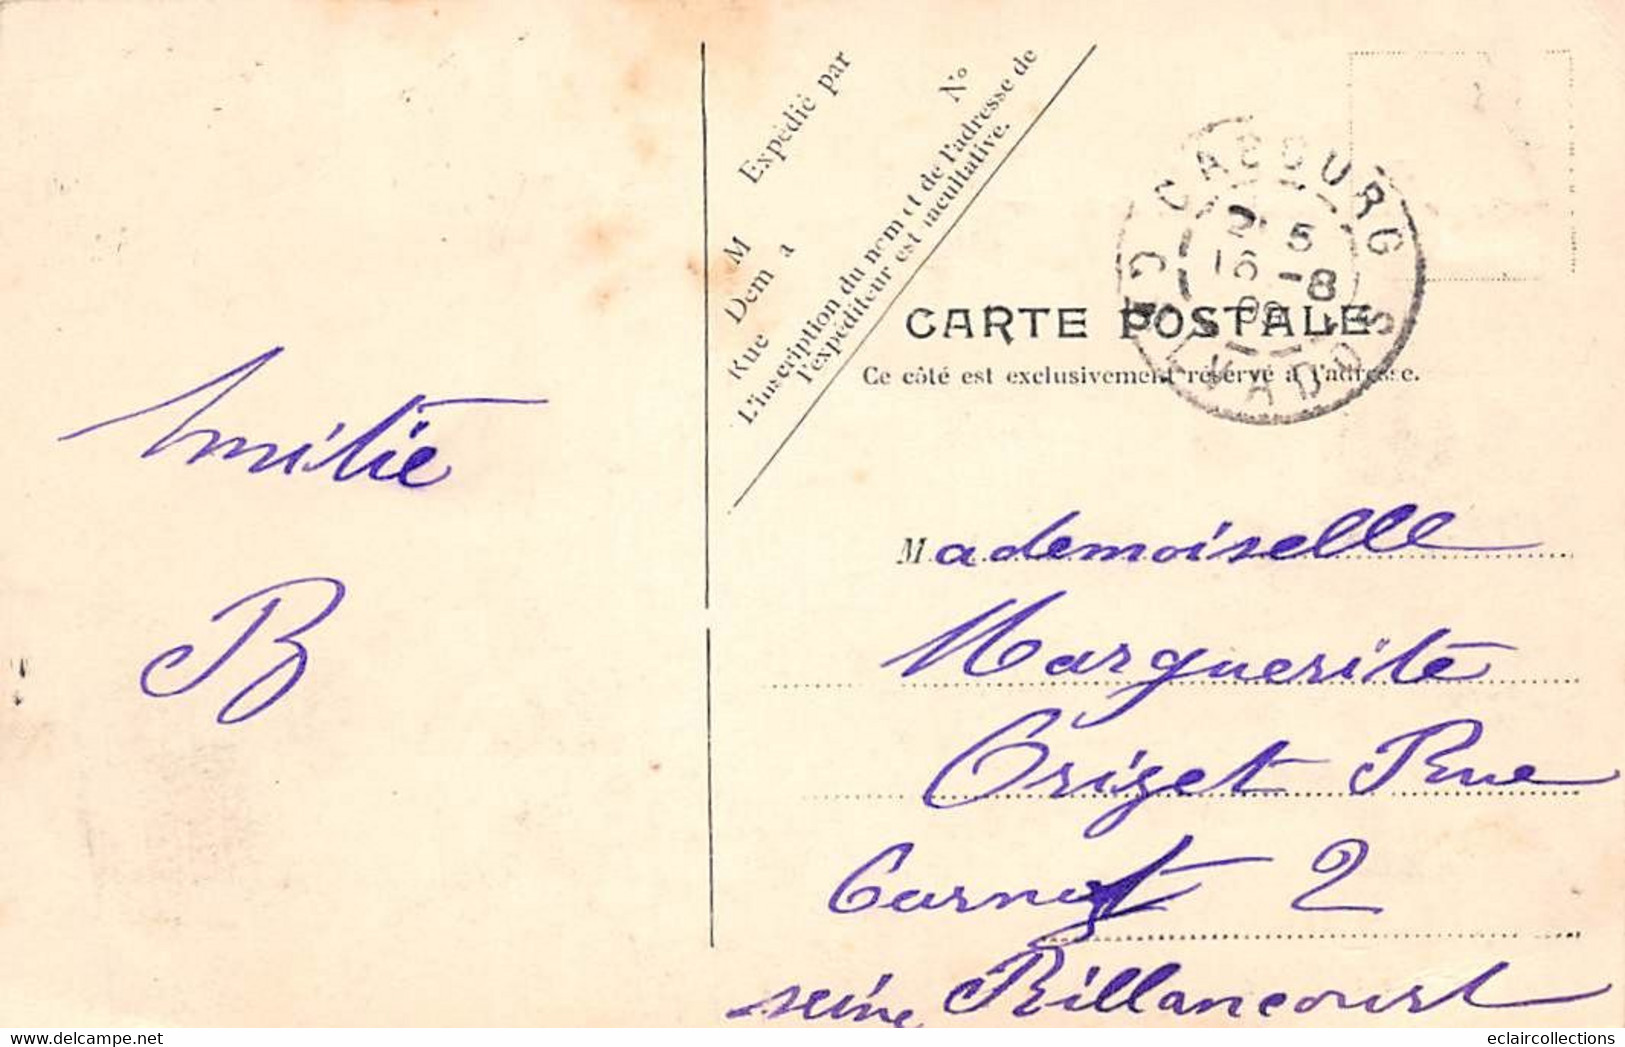 Amitié
B
Expédié par
M
Dem à
Rue
N°
L'inscription du nom et de l'adresse de
l'expéditeur est facultative.
CABOURG
16 -8
CALVADOS
CARTE POSTALE
Ce côté est exclusivement réservé à l'adresse.
Mademoiselle
Marguerite
Orizet Rue
Carnot 2
Billancourt
seine
delcampe.net
eclaircollections